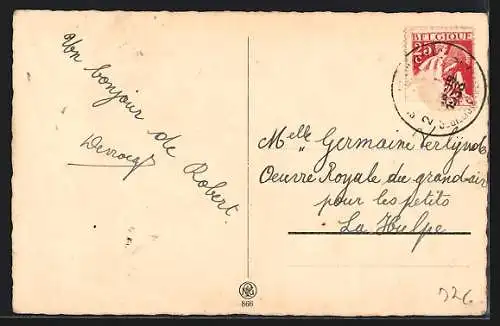 Un bonjour de Robert.
BELGIQUE
25
c
Melle Germaine
Oeuvre Royale du grand air
pour les petits
La Hulpe
866